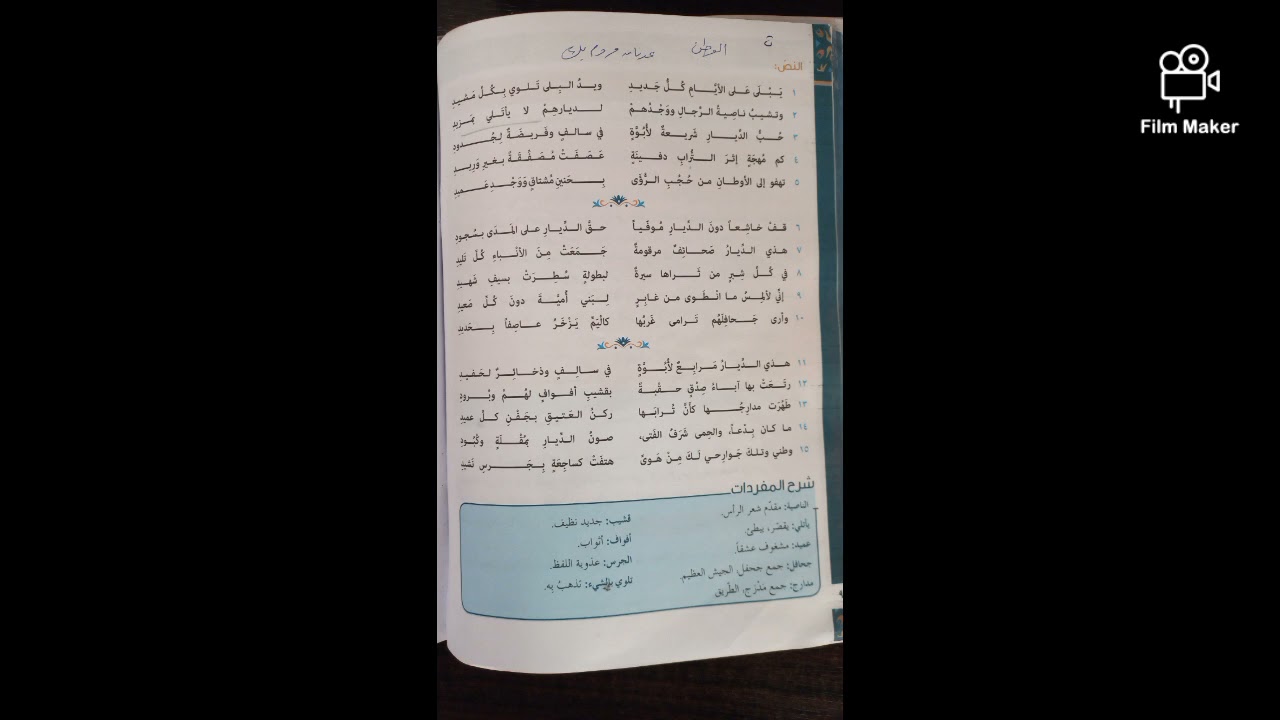 ت الوطن عدنان مردم بك
النصّ:
١ يَبْلَى عَلى الأيّامِ كُلُّ جَديدِ ويدُ البِلى تَلوي بِكُلِّ مَشيدِ
٢ وتشيبُ ناصيةُ الرِّجالِ ووَجْدُهمْ لديارِهِمْ لا يأتَلي بمَزيدِ
٣ حُبُّ الدِّيارِ شَريعةٌ لأُبُوَّةٍ في سالفٍ وفَريضَةٌ لجُدودِ
٤ كم مُهجَةٍ إثرَ التُّرابِ دفينَةٍ عَصَفَتْ مُصَفِّقَةً بغيرِ وَريدِ
٥ تهفو إلى الأوطانِ من حُجُبِ الرُّؤَى بِحَنينِ مُشتاقٍ وَوَجْدِ عَميدِ
٦ قفْ خاشِعاً دونَ الدِّيارِ مُوفّياً حقَّ الدِّيارِ على المَدَى بسُجودِ
٧ هذي الدِّيارُ صَحائفٌ مرقومةٌ جَمَعَتْ مِنَ الأنْباءِ كُلَّ تَليدِ
٨ في كُلِّ شِبرٍ من ثَراها سيرةٌ لبطولةٍ سُطِرَتْ بسيفِ شَهيدِ
٩ إنّي لألمسُ ما انْطَوى من غابِرٍ لِبَني أُميَّةَ دونَ كُلِّ صَعيدِ
١٠ وأرى جَحافِلَهُم تَرامى غَربُها كاليَمِّ يَزْخَرُ عاصِفاً بِحَديدِ
١١ هذي الدِّيارُ مَرابِعٌ لأُبُوَّةٍ في سالِفٍ وذخائِرٌ لحَفيدِ
١٢ رتَعَتْ بها آباءُ صِدْقٍ حقْبةً بقشيبِ أفوافٍ لهُمْ وبُرودِ
١٣ طَهُرَت مدارجُها كأنَّ تُرابَها ركنُ العَتيقِ بجَفْنِ كلِّ عميدِ
١٤ ما كان بِدْعاً، والحِمى شَرَفُ الفَتى، صونُ الدِّيارِ بمُقْلَةٍ وكُبُودِ
١٥ وطَني وتلكَ جَوارحي لَكَ مِنْ هَوىً هتفَتْ كساجِعَةٍ بِجَرسِ نَشيدِ
شرح المفردات
الناصية: مقدّم شعر الرأس.
يأتلي: يقصّر، يبطئ.
عميد: مشغوف عشقاً.
جحافل: جمع جحفل، الجيش العظيم.
مدارج: جمع مَدْرَج، الطّريق
قشيب: جديد نظيف.
أفواف: أثواب.
الجرس: عذوبة اللفظ.
تلوي بالشيء: تذهبُ به.
Film Maker